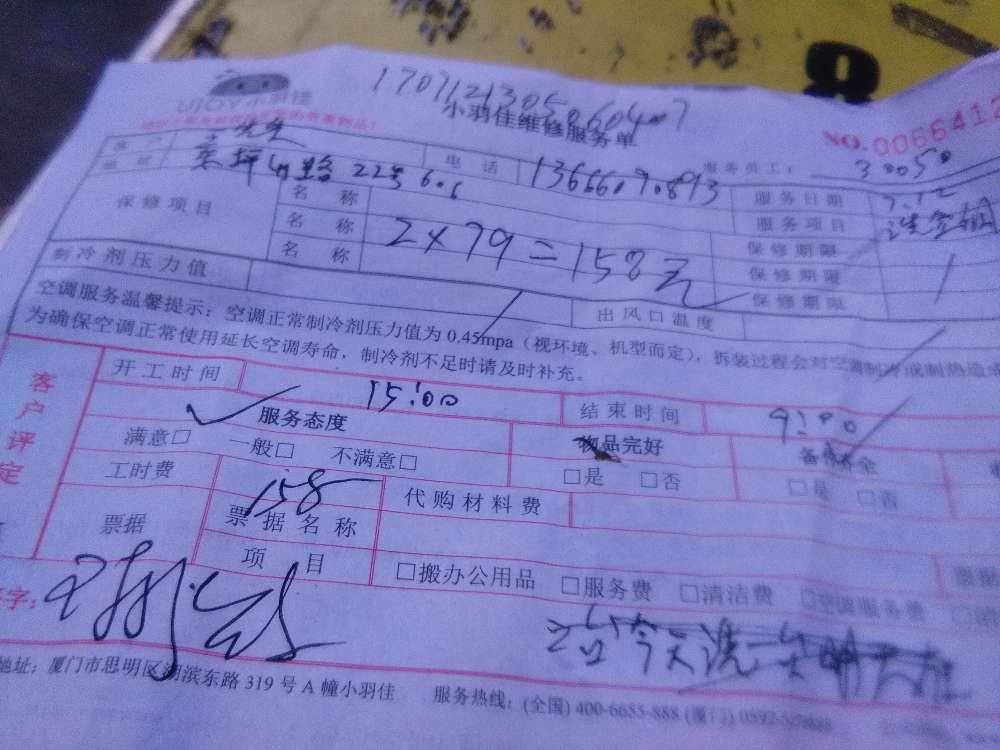 1707121305060407
UJOY小羽佳
小羽佳维修服务单
NO.0066412
先生 电话 13666090893 服务员工: 30050
地址 22号 606 服务日期 7.12
保修项目 名称 服务项目 洗空调
名称 2×79=158元 保修期限
名称 保修期限
保修期限
制冷剂压力值 出风口温度
空调服务温馨提示:空调正常制冷剂压力值为0.45mpa(视环境、机型而定),拆装过程会对空调制冷或制热造成
为确保空调正常使用延长空调寿命,制冷剂不足时请及时补充。
客户评定
开工时间 15:00 结束时间
服务态度 物品完好
满意□ 一般□ 不满意□ □是 □否 □是 □否
工时费 158 代购材料费
票据 票据名称
项目 □搬办公用品 □服务费 □清洁费 □空调服务费
字:
今天洗一台明天
地址:厦门市思明区湖滨东路319号A幢小羽佳 服务热线:(全国)400-6655-888(厦门)